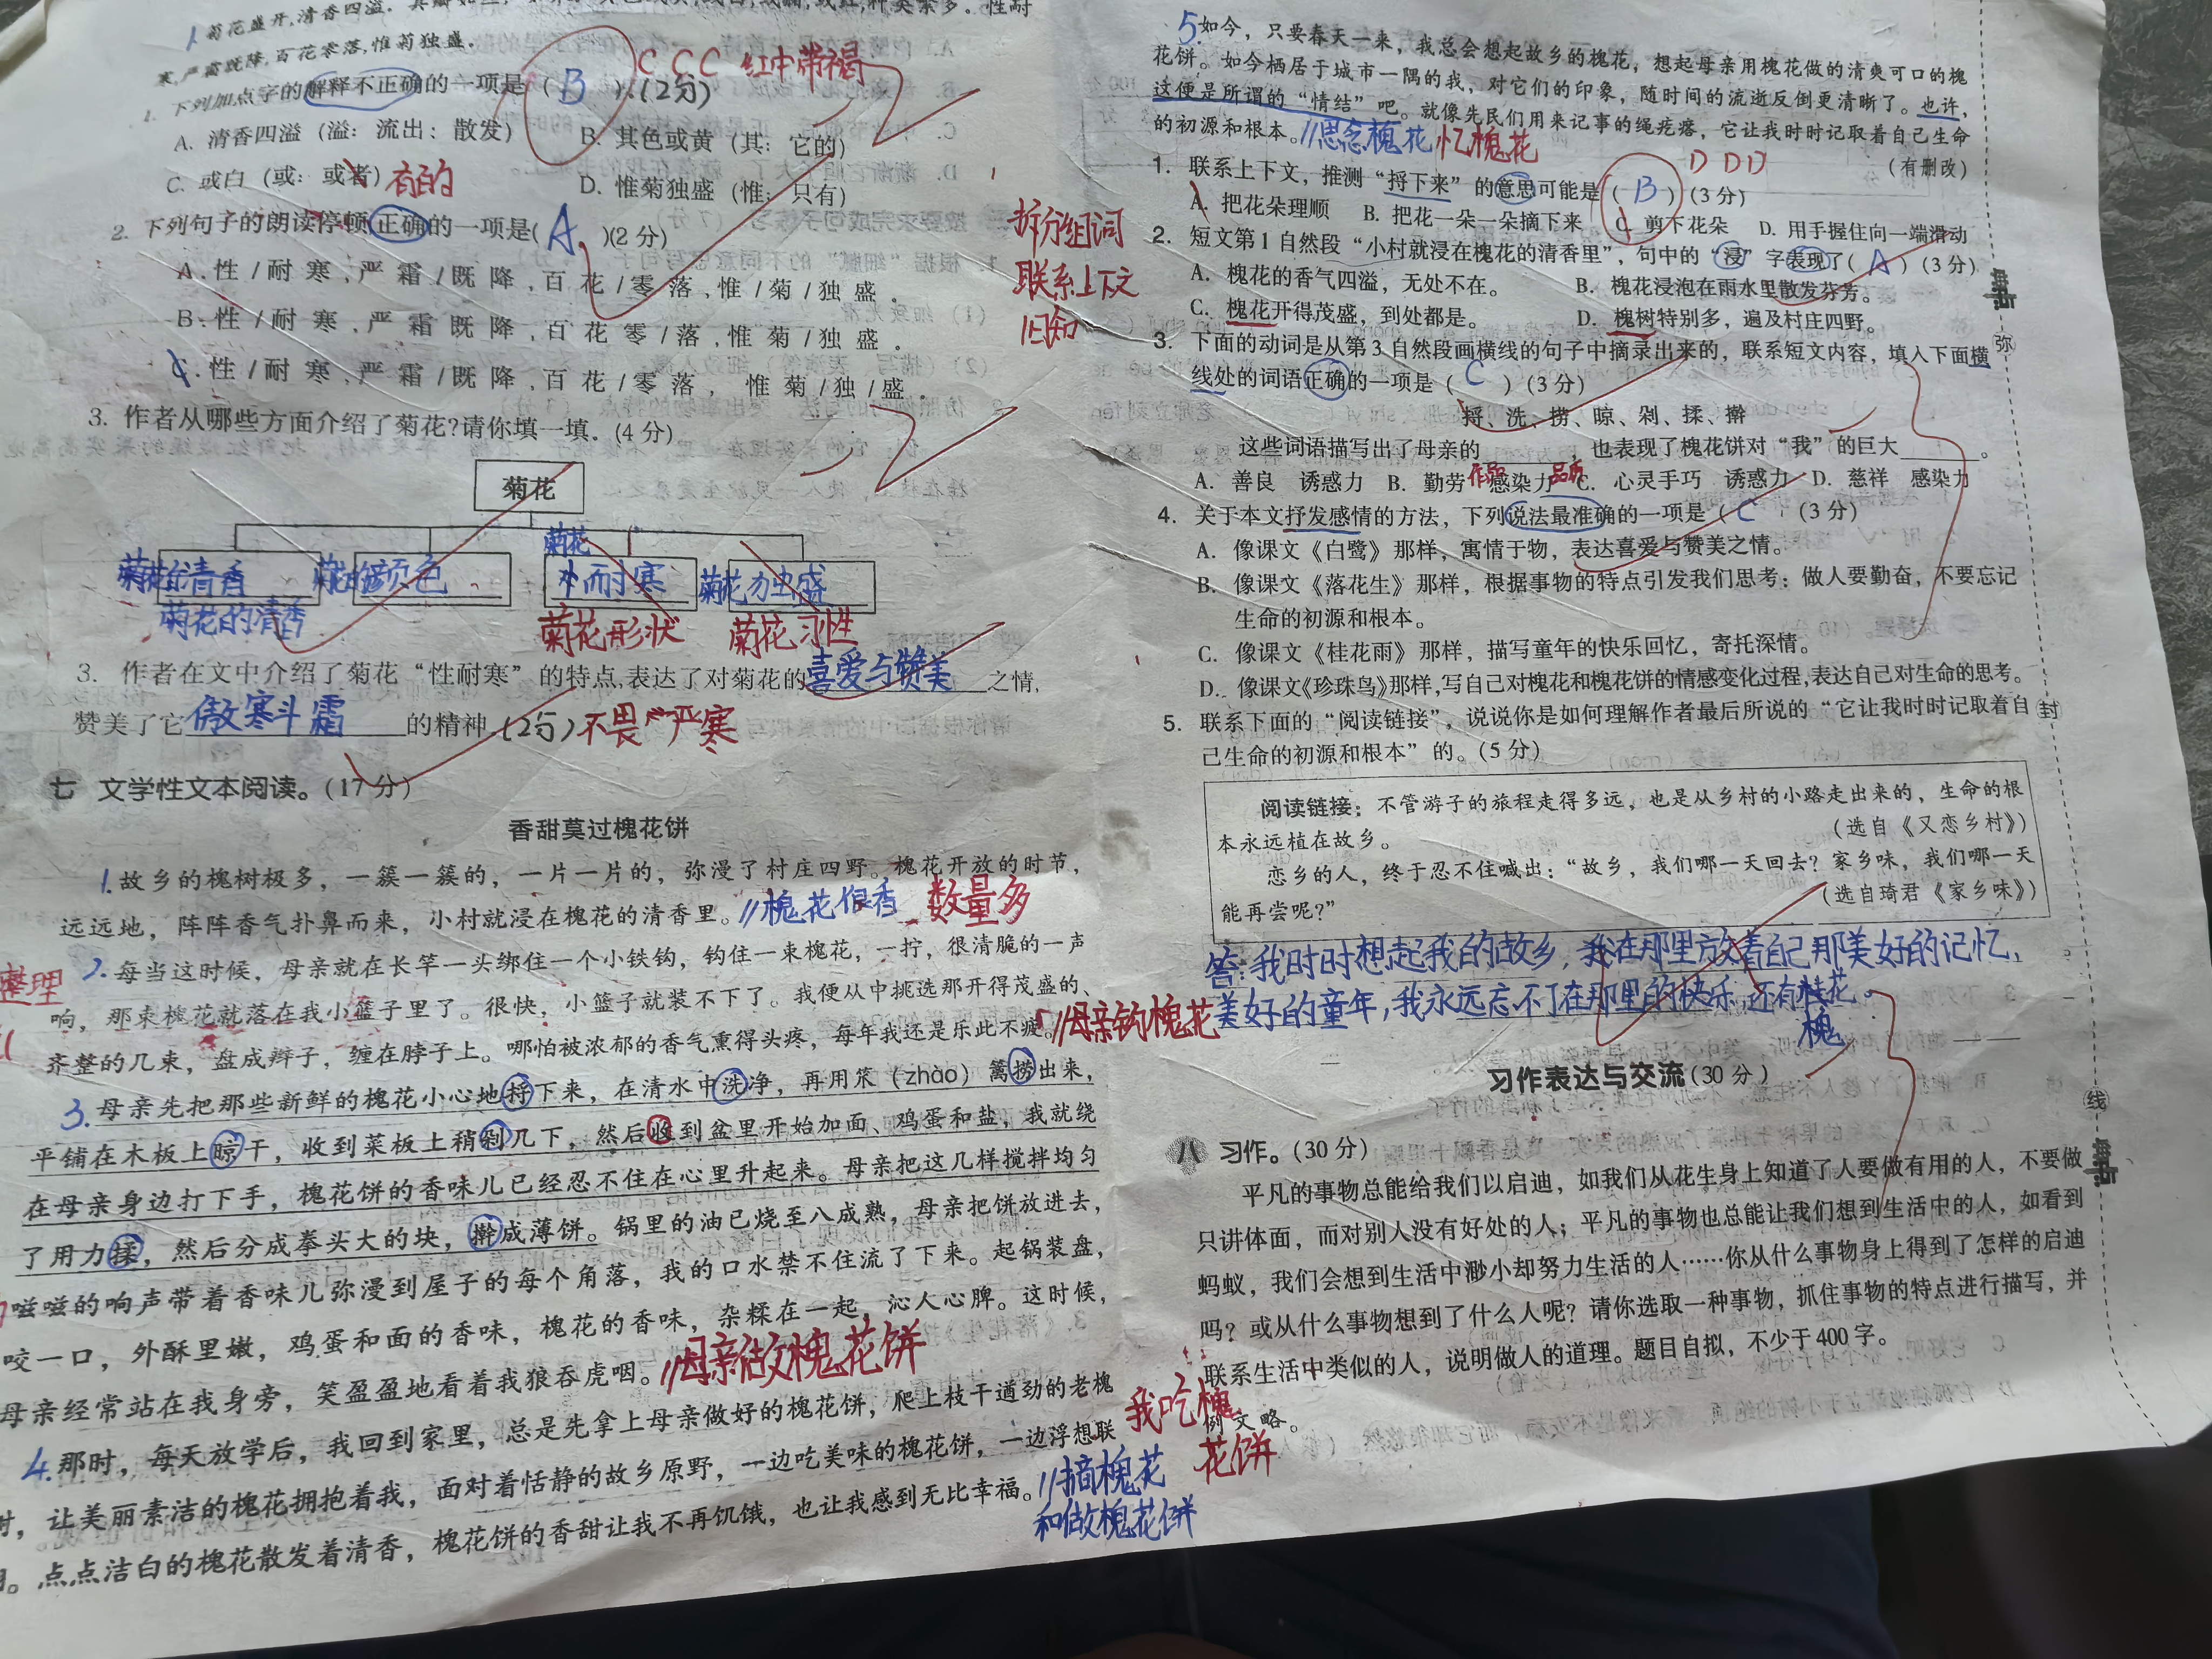 1.菊花盛开,清香四溢。
寒,严霜既降,百花零落,惟菊独盛。
1. 下列加点字的解释不正确的一项是( B ).(2分) C C C 红中带褐
A. 清香四溢(溢:流出;散发) B. 其色或黄(其:它的)
C. 或白(或:或者) 有的 D. 惟菊独盛(惟:只有)
2. 下列句子的朗读停顿正确的一项是( A )(2分)
A.性/耐寒,严霜/既降,百花/零落,惟/菊/独盛。
B.性/耐寒,严霜既降,百花零/落,惟菊/独盛。
C.性/耐寒,严霜/既降,百花/零落,惟菊/独/盛。
3. 作者从哪些方面介绍了菊花?请你填一填.(4分)
菊花
菊花的清香 菊花的颜色 菊花 耐寒 菊花独盛
菊花的清香 菊花形状 菊花习性
3. 作者在文中介绍了菊花“性耐寒”的特点,表达了对菊花的喜爱与赞美之情,
赞美了它傲寒斗霜的精神.(2分) 不畏严寒
七 文学性文本阅读。(17分)
香甜莫过槐花饼
1.故乡的槐树极多,一簇一簇的,一片一片的,弥漫了村庄四野。槐花开放的时节,
远远地,阵阵香气扑鼻而来,小村就浸在槐花的清香里。//槐花很香 数量多
整理
2.每当这时候,母亲就在长竿一头绑住一个小铁钩,钩住一束槐花,一拧,很清脆的一声
响,那束槐花就落在我小篮子里了。很快,小篮子就装不下了。我便从中挑选那开得茂盛的、
齐整的几束,盘成辫子,缠在脖子上。哪怕被浓郁的香气熏得头疼,每年我还是乐此不疲。//母亲钩槐花
3.母亲先把那些新鲜的槐花小心地捋下来,在清水中洗净,再用笊(zhào)篱捞出来,
平铺在木板上晾干,收到菜板上稍剁几下,然后收到盆里开始加面、鸡蛋和盐,我就绕
在母亲身边打下手,槐花饼的香味儿已经忍不住在心里升起来。母亲把这几样搅拌均匀
了用力揉,然后分成拳头大的块,擀成薄饼。锅里的油已烧至八成熟,母亲把饼放进去,
嗞嗞的响声带着香味儿弥漫到屋子的每个角落,我的口水禁不住流了下来。起锅装盘,
咬一口,外酥里嫩,鸡蛋和面的香味,槐花的香味,杂糅在一起,沁人心脾。这时候,
母亲经常站在我身旁,笑盈盈地看着我狼吞虎咽。//母亲做槐花饼
4.那时,每天放学后,我回到家里,总是先拿上母亲做好的槐花饼,爬上枝干遒劲的老槐
树,让美丽素洁的槐花拥抱着我,面对着恬静的故乡原野,一边吃美味的槐花饼,一边浮想联
。点点洁白的槐花散发着清香,槐花饼的香甜让我不再饥饿,也让我感到无比幸福。//摘槐花
和做槐花饼
我吃槐
花饼
5.如今,只要春天一来,我总会想起故乡的槐花,想起母亲用槐花做的清爽可口的槐
花饼。如今栖居于城市一隅的我,对它们的印象,随时间的流逝反倒更清晰了。也许,
这便是所谓的“情结”吧。就像先民们用来记事的绳疙瘩,它让我时时记取着自己生命
的初源和根本。//思念槐花 忆槐花
(有删改)
拆分组词
联系上下文
旧知
1. 联系上下文,推测“捋下来”的意思可能是( B )(3分) D D D
A. 把花朵理顺 B. 把花一朵一朵摘下来 C. 剪下花朵 D. 用手握住向一端滑动
2. 短文第1自然段“小村就浸在槐花的清香里”,句中的“浸”字表现了( A )(3分)
A. 槐花的香气四溢,无处不在。 B. 槐花浸泡在雨水里散发芬芳。
C. 槐花开得茂盛,到处都是。 D. 槐树特别多,遍及村庄四野。
3. 下面的动词是从第3自然段画横线的句子中摘录出来的,联系短文内容,填入下面横
线处的词语正确的一项是( C )(3分)
捋、洗、捞、晾、剁、揉、擀
这些词语描写出了母亲的______,也表现了槐花饼对“我”的巨大______。
A. 善良 诱惑力 B. 勤劳 感染力 C. 心灵手巧 诱惑力 D. 慈祥 感染力
4. 关于本文抒发感情的方法,下列说法最准确的一项是( C )(3分)
A. 像课文《白鹭》那样,寓情于物,表达喜爱与赞美之情。
B. 像课文《落花生》那样,根据事物的特点引发我们思考:做人要勤奋,不要忘记
生命的初源和根本。
C. 像课文《桂花雨》那样,描写童年的快乐回忆,寄托深情。
D. 像课文《珍珠鸟》那样,写自己对槐花和槐花饼的情感变化过程,表达自己对生命的思考。
5. 联系下面的“阅读链接”,说说你是如何理解作者最后所说的“它让我时时记取着自
己生命的初源和根本”的。(5分)
阅读链接:不管游子的旅程走得多远,也是从乡村的小路走出来的,生命的根
本永远植在故乡。 (选自《又恋乡村》)
恋乡的人,终于忍不住喊出:“故乡,我们哪一天回去?家乡味,我们哪一天
能再尝呢?” (选自琦君《家乡味》)
答:我时时想起我的故乡,我在那里放着自己那美好的记忆,
美好的童年,我永远忘不了在那里的快乐,还有桂花。
槐
习作表达与交流(30分)
八 习作。(30分)
平凡的事物总能给我们以启迪,如我们从花生身上知道了人要做有用的人,不要做
只讲体面,而对别人没有好处的人;平凡的事物也总能让我们想到生活中的人,如看到
蚂蚁,我们会想到生活中渺小却努力生活的人……你从什么事物身上得到了怎样的启迪
吗?或从什么事物想到了什么人呢?请你选取一种事物,抓住事物的特点进行描写,并
联系生活中类似的人,说明做人的道理。题目自拟,不少于400字。
例文略。
弥
封
线